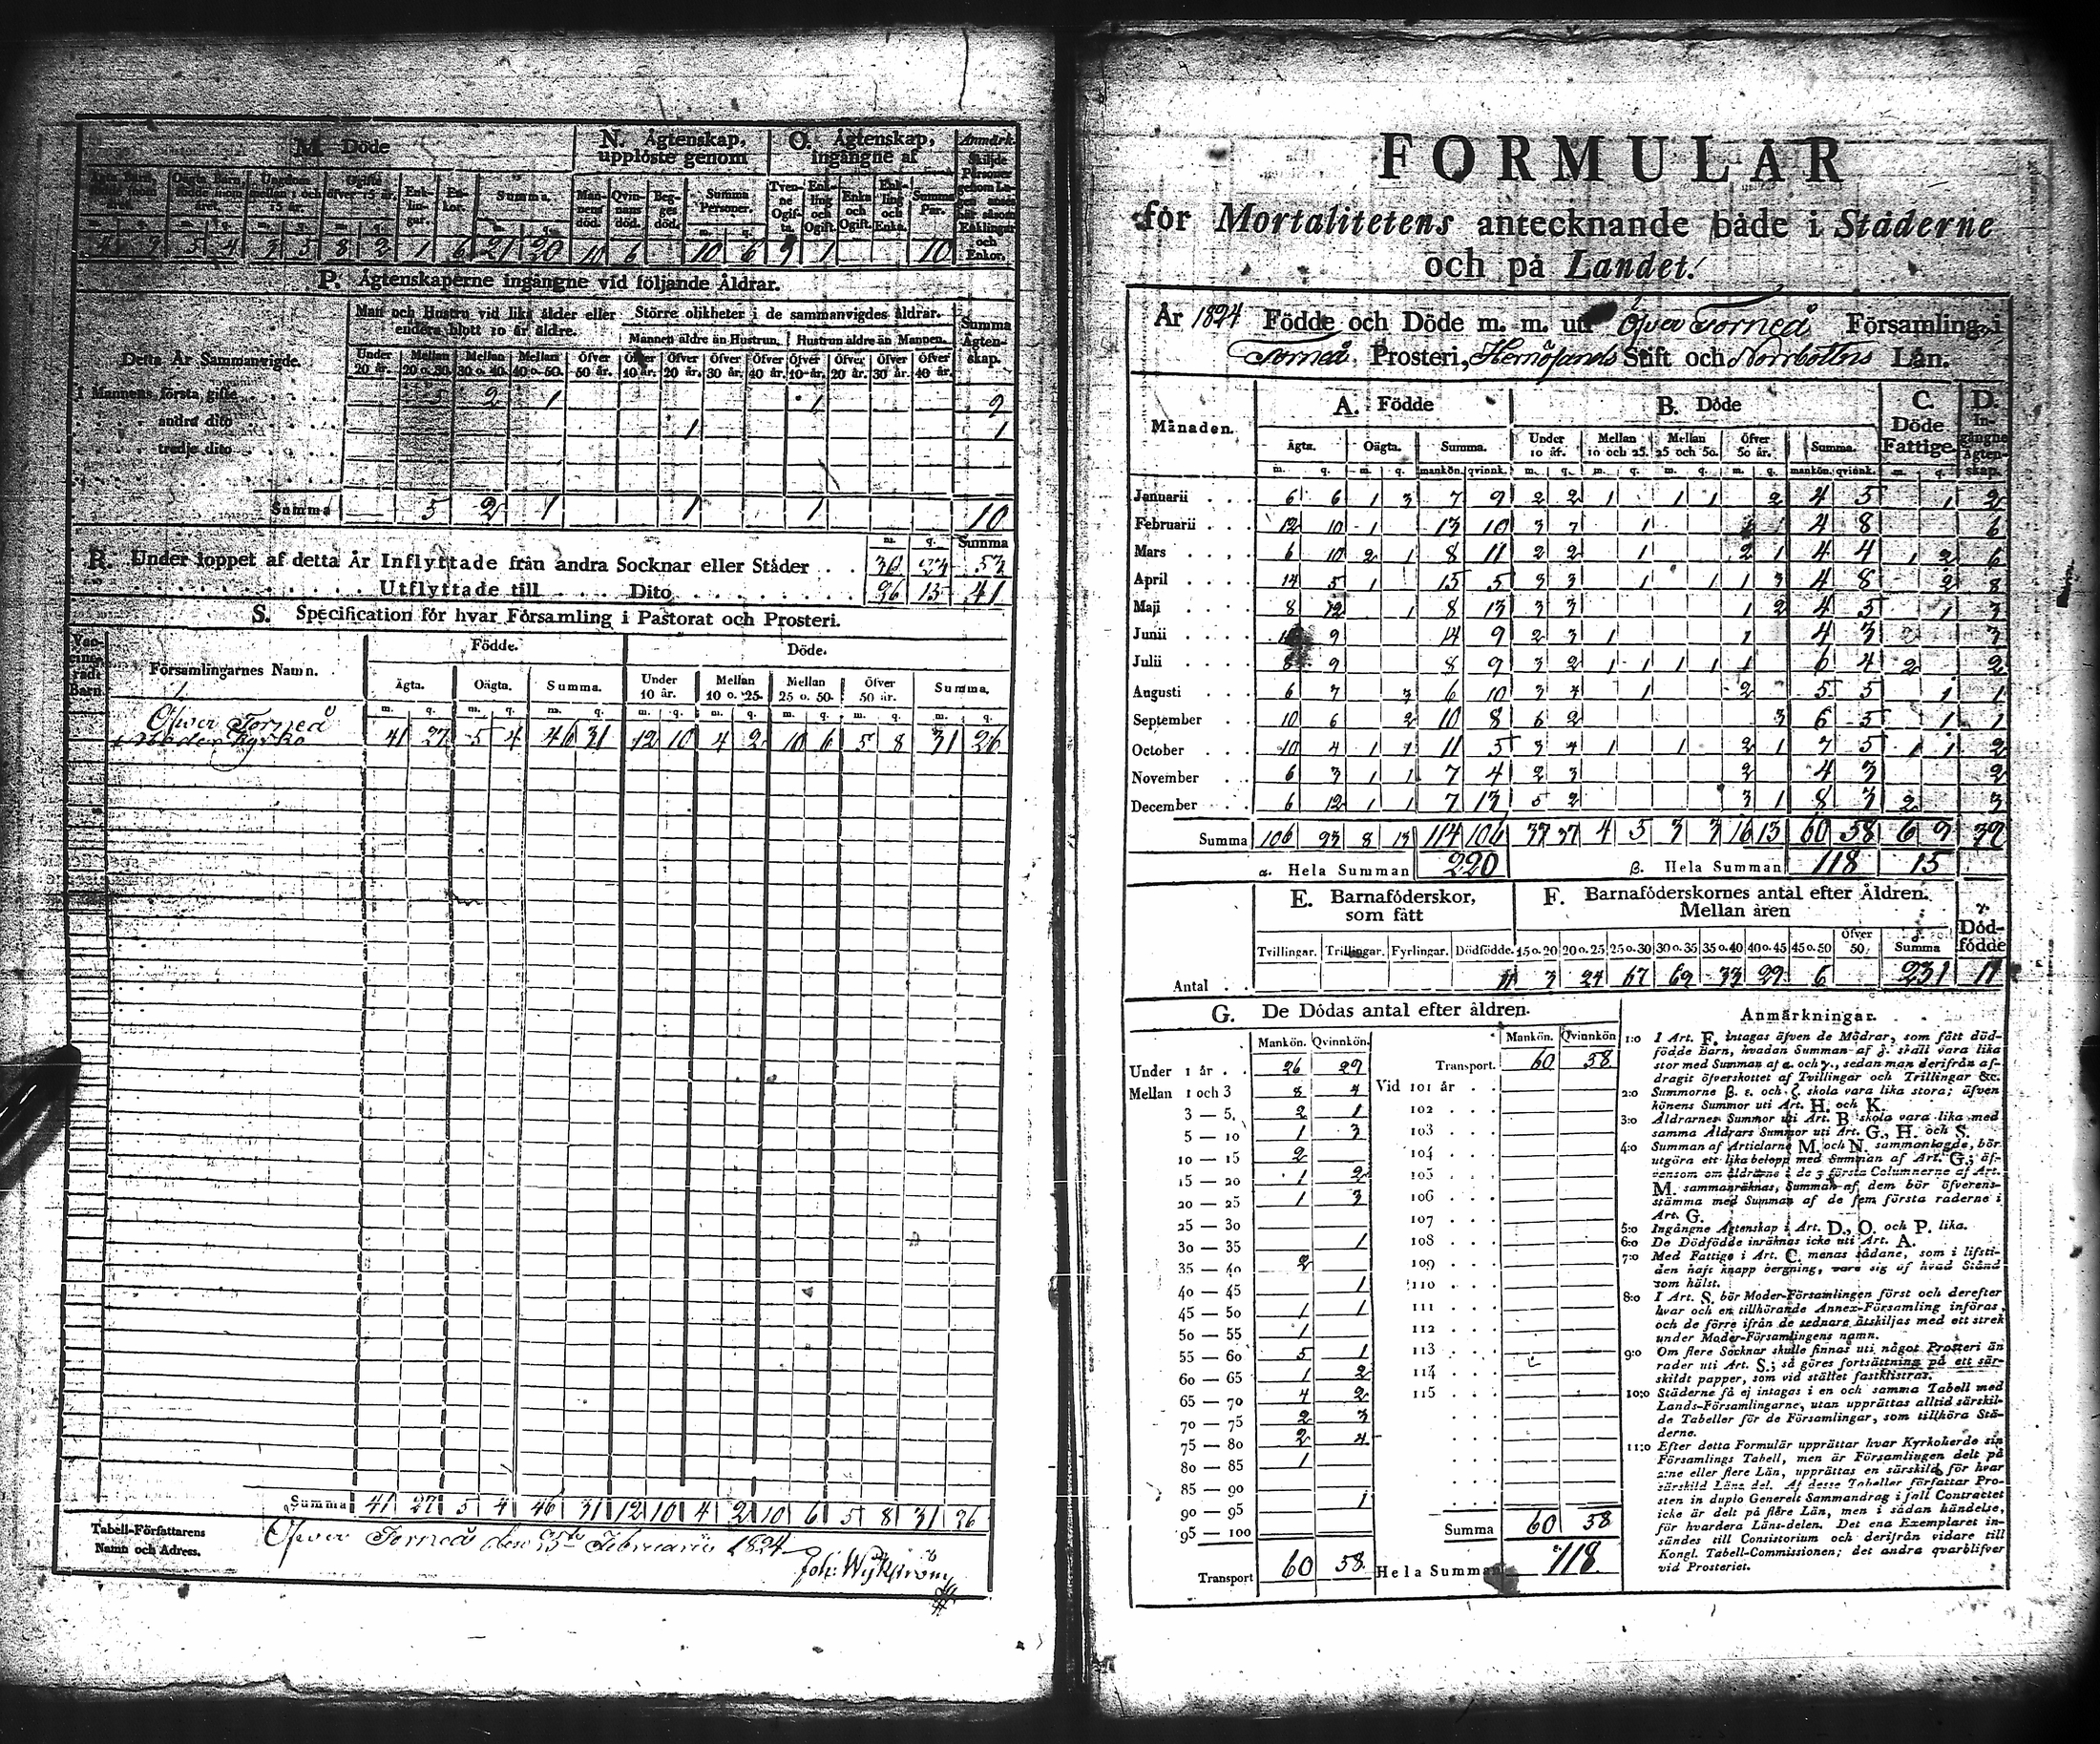 M. Döde
N. Ägtenskap, upplöste genom
O. Ägtenskap, ingångne af
Anmärk.
Enk-lin-gar. En-kor. Summa.
Man-nens död. Qvin-nans död. Beg-ges död. Summa Personer.
Tven-ne Ogif-ta. Enk-ling och Ogift. Enka och Ogift. Enk-ling och Enka. Summa Par.
5 4 3 5 8 2 1 6 21 20 10 6 10 6 9 1 10
P. Ägtenskaperne ingångne vid följande Åldrar.
Man och Hustru vid lika ålder eller endera blott 10 år äldre.
Större olikheter i de sammanvigdes åldrar.
Summa Ägten-skap.
Mannen äldre än Hustrun. Hustrun äldre än Mannen.
Detta År Sammanvigde.
Under 20 år. Mellan 20 o. 30. Mellan 30 o. 40. Mellan 40 o. 50. Öfver 50 år. Öfver 10 år. Öfver 20 år. Öfver 30 år. Öfver 40 år. Öfver 10 år. Öfver 20 år. Öfver 30 år. Öfver 40 år.
I Mannens första gifte 5 2 1 1 9
andra dito 1 1
tredje dito
Summa 5 2 1 1 1 10
m. q. Summa
R. Under loppet af detta År Inflyttade från andra Socknar eller Städer 30 23 53
Utflyttade till Dito 26 15 41
S. Specification för hvar Församling i Pastorat och Prosteri.
Församlingarnes Namn.
Födde. Döde.
Ägta. Oägta. Summa. Under 10 år. Mellan 10 o. 25. Mellan 25 o. 50. Öfver 50 år. Summa.
m. q. m. q. m. q. m. q. m. q. m. q. m. q. m. q.
Öfver Torneå
Moderkyrko 41 27 5 4 46 31 12 10 4 2 10 6 5 8 31 26
Summa 41 27 5 4 46 31 12 10 4 2 10 6 5 8 31 26
Tabell-Författarens Namn och Adress.
Öfver Torneå den Februarii 1824
Joh: Wykström
FORMULAR
för Mortalitetens antecknande både i Städerne
och på Landet.
År 1824 Födde och Döde m. m. uti Öfver Torneå Församling, i
Torneå Prosteri, Hernösands Stift och Norrbottens Län.
Månaden. A. Födde B. Döde C. Döde Fattige. D. In-gångne Ägten-skap.
Ägta. Oägta. Summa. Under 10 år. Mellan 10 och 25. Mellan 25 och 50. Öfver 50 år. Summa.
m. q. m. q. mankön. qvinnk. m. q. m. q. m. q. m. q. mankön. qvinnk. m. q.
Januarii 6 6 1 3 7 9 2 2 1 1 1 2 4 5 1 2
Februarii 12 10 1 13 10 3 7 1 1 4 8 6
Mars 6 10 2 1 8 11 2 2 1 2 1 4 4 1 2 6
April 14 5 1 15 5 3 3 1 1 1 3 4 8 2 8
Maji 8 12 1 8 13 3 3 1 2 4 5 1 3
Junii 14 9 14 9 2 3 1 1 4 3 3
Julii 8 9 8 9 3 2 1 1 1 1 1 6 4 2 2
Augusti 6 7 3 6 10 3 4 1 2 5 5 1 1
September 10 6 2 10 8 6 2 3 6 5 1 1
October 10 4 1 1 11 5 3 4 1 1 2 1 7 5 1 1 2
November 6 3 1 1 7 4 2 3 2 4 3 2
December 6 12 1 1 7 13 5 2 3 1 8 3 2 3
Summa 106 93 8 13 114 106 37 37 4 5 3 3 16 13 60 58 6 9 39
α. Hela Summan 220 β. Hela Summan 118 15
E. Barnaföderskor, som fått
F. Barnaföderskornes antal efter Åldren. Mellan åren
γ. Död-födde
Tvillingar. Trillingar. Fyrlingar. Dödfödde. 15 o. 20 20 o. 25 25 o. 30 30 o. 35 35 o. 40 40 o. 45 45 o. 50 Öfver 50. Summa
Antal 11 3 24 67 69 33 29 6 231 11
G. De Dödas antal efter åldren.
Mankön. Qvinnkön. Mankön. Qvinnkön
Under 1 år 26 29 Transport. 60 58
Mellan 1 och 3 8 4 Vid 101 år
3 — 5. 2 1 102
5 — 10 1 3 103
10 — 15 2 104
15 — 20 1 2 105
20 — 25 1 3 106
25 — 30 107
30 — 35 1 108
35 — 40 2 109
40 — 45 1 110
45 — 50 1 1 111
50 — 55 1 112
55 — 60 5 1 113
60 — 65 1 2 114
65 — 70 4 2 115
70 — 75 2 3
75 — 80 2 4
80 — 85 1
85 — 90
90 — 95 1
95 — 100 Summa 60 58
Transport 60 58 Hela Summan 118.
Anmärkningar.
1:o I Art. F. intagas äfven de Mödrar, som fått död-
födde Barn, hvadan Summan af δ. skall vara lika
stor med Summan af α. och γ., sedan man derifrån af-
dragit öfverskottet af Tvillingar och Trillingar &c.
2:o Summorne β. ε. och ζ. skola vara lika stora; äfven
könens Summor uti Art. H. och K.
3:o Åldrarnes Summor uti Art. B. skola vara lika med
samma Åldrars Summor uti Art. G., H. och S.
4:o Summan af Articlarne M. och N. sammanlagde, bör
utgöra ett lika belopp med Summan af Art. G; äf-
vensom om åldrarne i de 3 första Columnerne af Art.
M. sammanräknas, Summan af dem bör öfverens-
stämma med Summan af de fem första raderne i
Art. G.
5:o Ingångne Ägtenskap i Art. D., O. och P. lika.
6:o De Dödfödde inräknas icke uti Art. A.
7:o Med Fattige i Art. C. menas sådane, som i lifsti-
den haft knapp bergning, vare sig af hvad Stånd
som hälst.
8:o I Art. S. bör Moder-Församlingen först och derefter
hvar och en tillhörande Annex-Församling införas,
och de förre ifrån de sednare åtskiljas med ett strek
under Moder-Församlingens namn.
9:o Om flere Socknar skulle finnas uti något Prosteri än
rader uti Art. S.; så göres fortsättning på ett sär-
skildt papper, som vid stället fastklistras.
10:o Städerne få ej intagas i en och samma Tabell med
Lands-Församlingarne, utan upprättas alltid särskil-
de Tabeller för de Församlingar, som tillhöra Stä-
derne.
11:o Efter detta Formulär upprättar hvar Kyrkoherde sin
Församlings Tabell, men är Församlingen delt på
2:ne eller flere Län, upprättas en särskild för hvar
särskild Läns del. Af desse Tabeller författar Pro-
sten in duplo Generelt Sammandrag i fall Contractet
icke är delt på flere Län, men i sådan händelse,
för hvardera Läns-delen. Det ena Exemplaret in-
sändes till Consistorium och derifrån vidare till
Kongl. Tabell-Commissionen; det andra qvarblifver
vid Prosteriet.